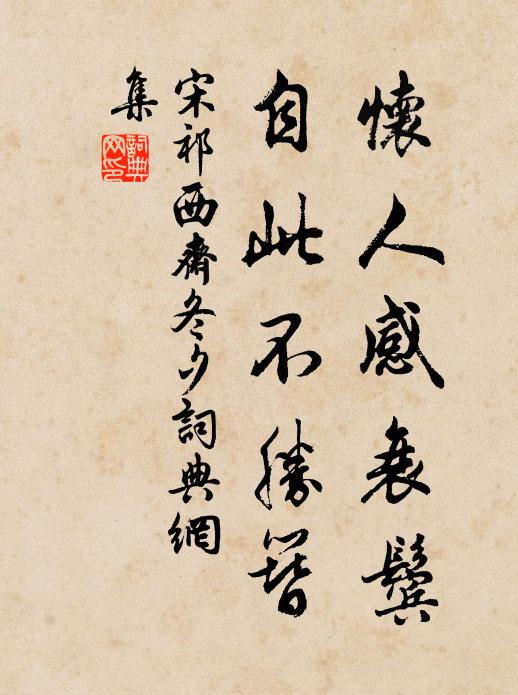 懷人感衰鬢
自此不勝簪
宋祁西齋冬夕詞典網
集
詞典
网印